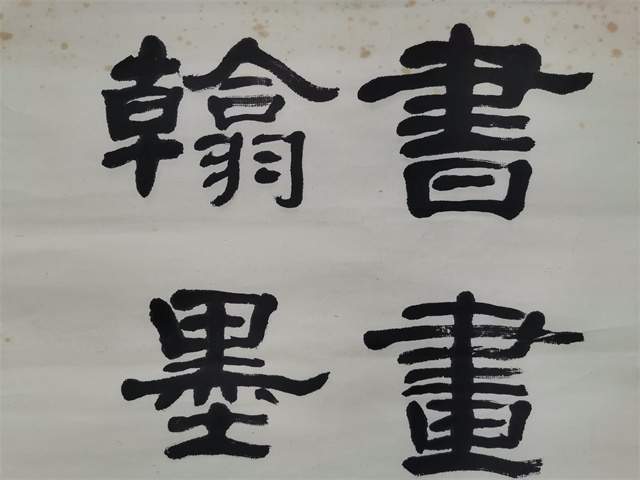 書畫
翰墨